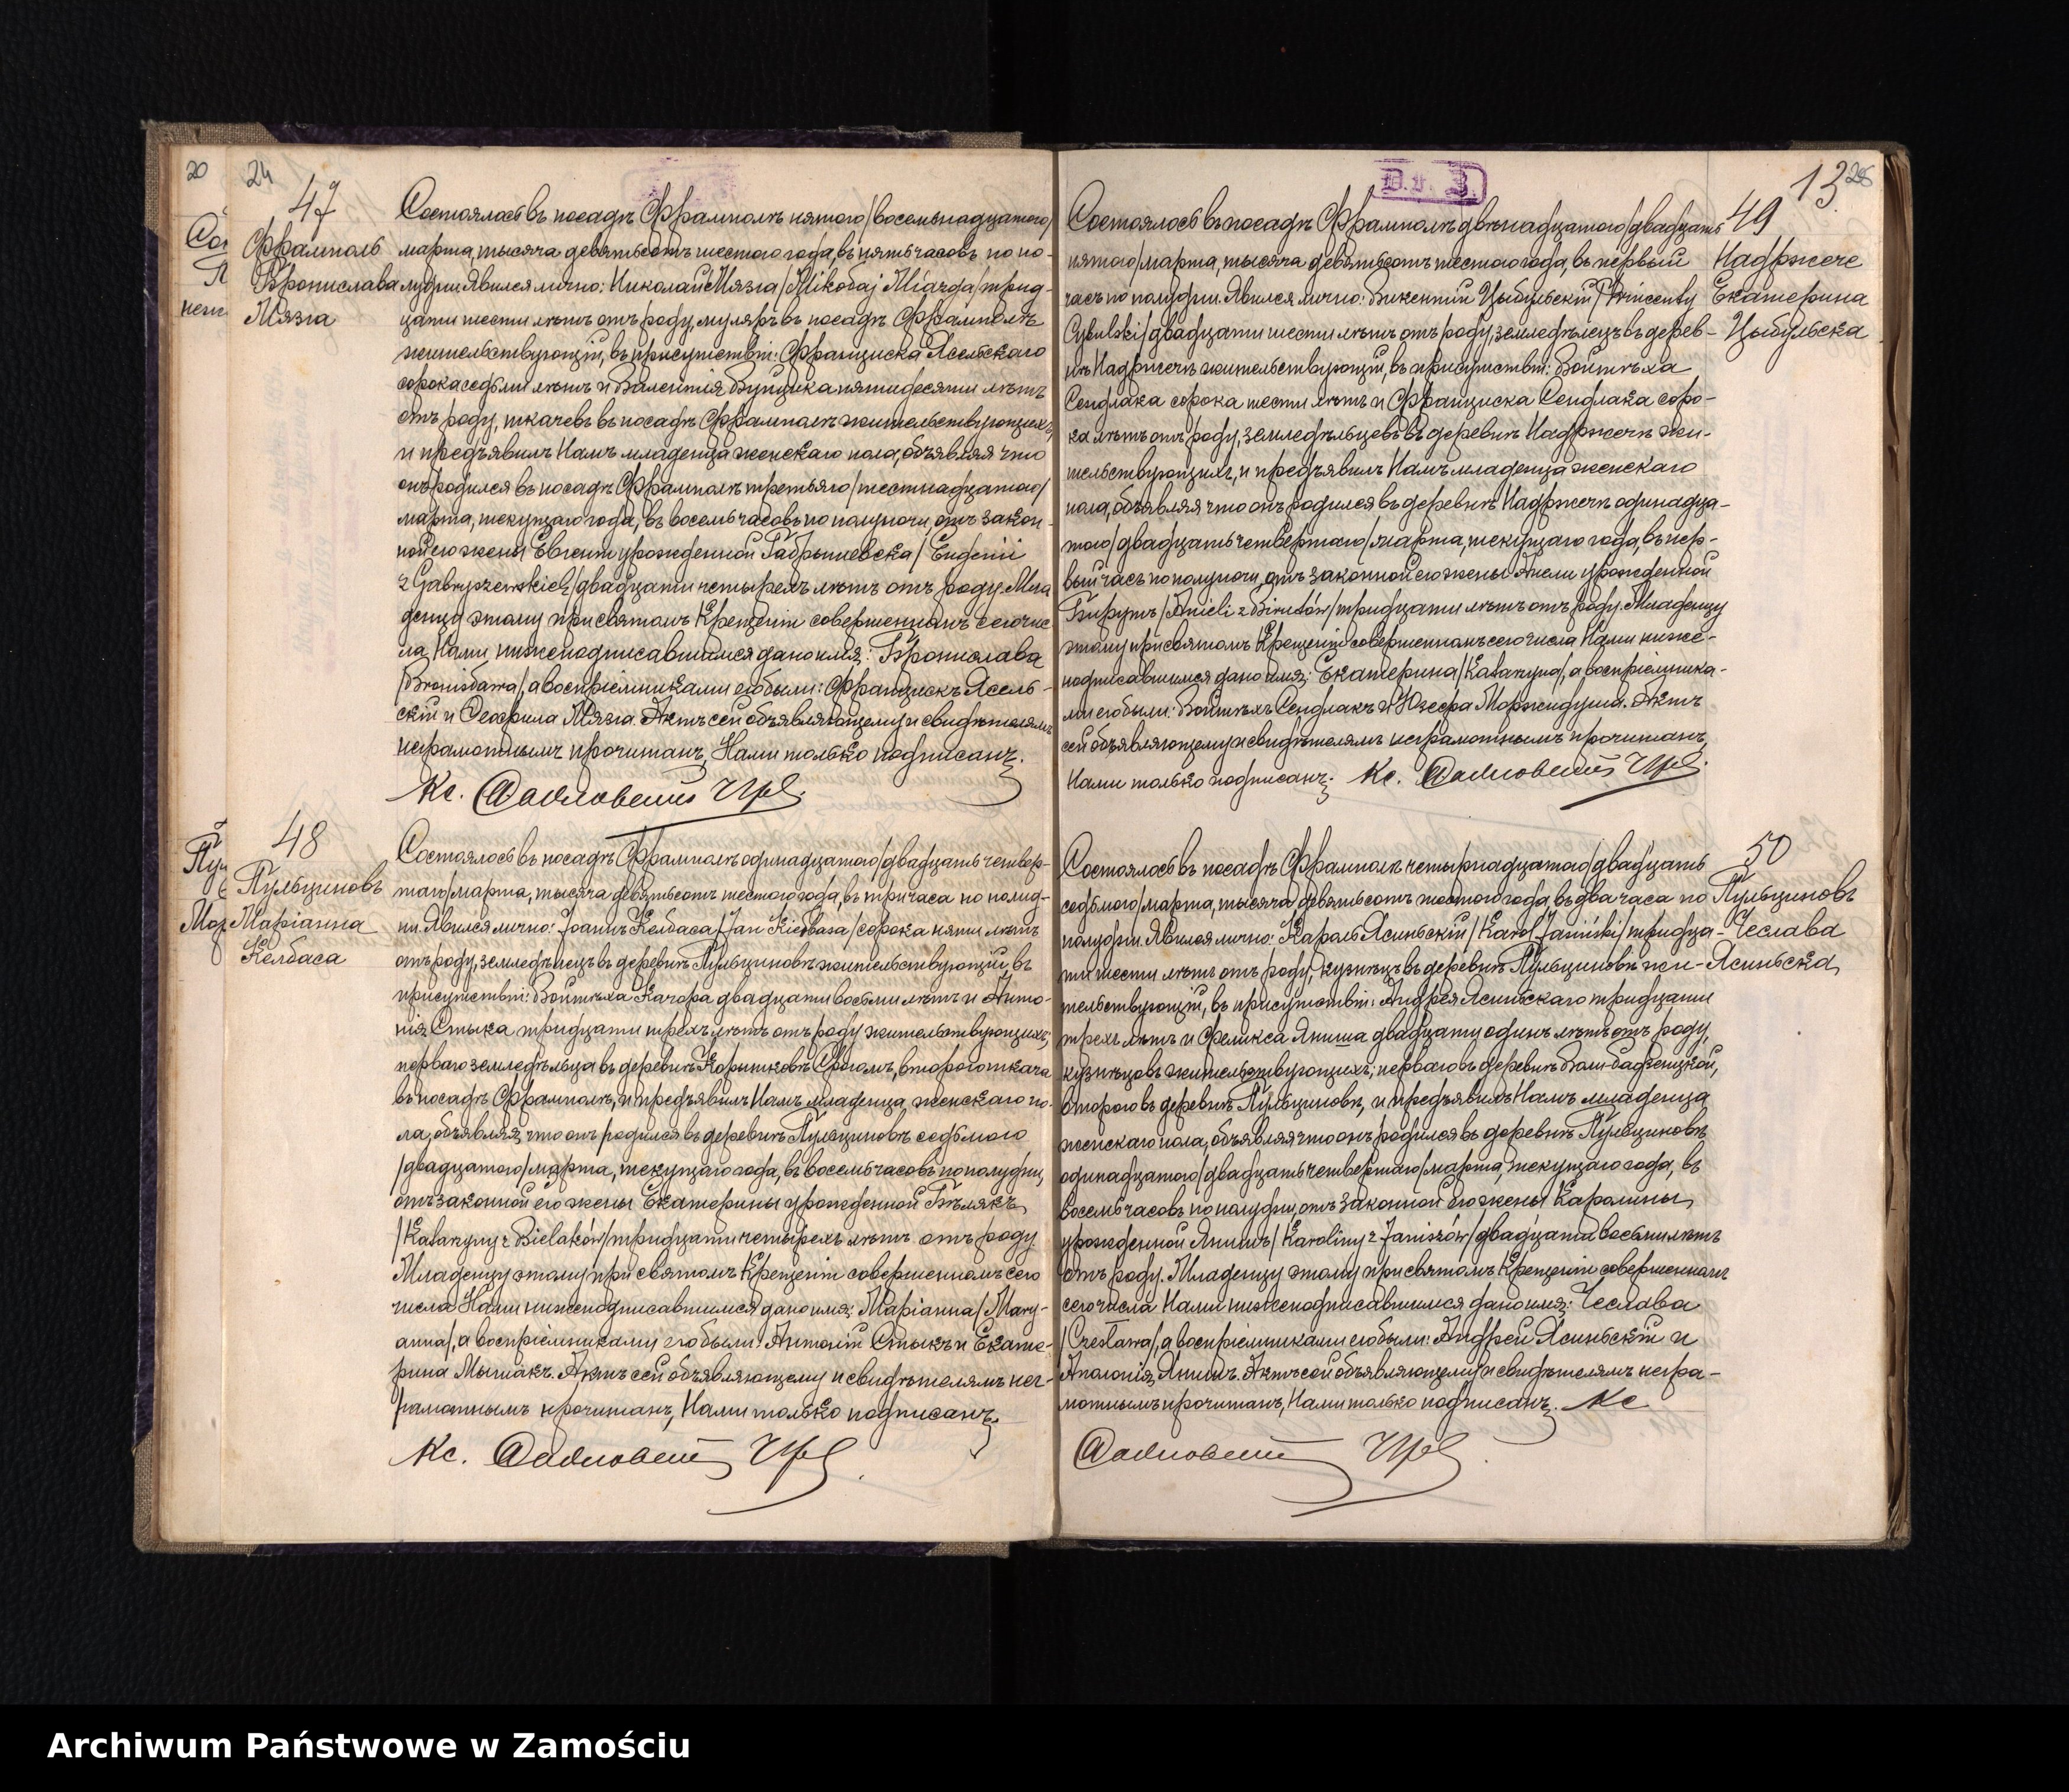 20
24
47
Фрамполь
Бронислава
Мязга
Состоялось въ посадѣ Фрамполѣ пятого/восемьнадцатого/
марта, тысяча девятьсотъ шестого года, въ пять часовъ по по-
лудни. Явился лично: Николай Мязга /Mikołaj Miazga/ трид-
цати шести лѣтъ отъ роду, муляръ въ посадѣ Фрамполѣ
жительствующій, въ присутствіи: Франциска Ясельскаго
сорока седьми лѣтъ и Валентія пятидесяти лѣтъ
отъ роду, ткачевъ въ посадѣ Фрамполѣ жительствующихъ,
и предъявилъ Намъ младенца женскаго пола, объявляя что
онъ родился въ посадѣ Фрамполѣ третьяго/шестнадцатого/
марта, текущаго года, въ восемь часовъ по полуночи, отъ закон-
ной его жены Евгеніи урожденной Габрышевска /Eugenii
z Gabryszewskich/ двадцати четырехъ лѣтъ отъ роду. Мла
денцу этому при святомъ Крещеніи совершенномъ сего чис
ла Нами нижеподписавшимся дано имя: Бронислава
/Bronisława/, а воспріемниками его были: Францискъ Ясель-
скій и Теофила Мязга. Актъ сей объявляющему и свидѣтелямъ
неграмотнымъ прочитанъ, Нами только подписанъ.
Кс.
48
Пульциновъ
Маріанна
Келбаса
Состоялось въ посадѣ Фрамполѣ одинадцатого/двадцать четвер-
таго/марта, тысяча девятьсотъ шестого года, въ три часа по полуд-
ни. Явился лично: Іоаннъ Келбаса /Jan Kiełbasa/ сорока пяти лѣтъ
отъ роду, земледѣлецъ въ деревнѣ Пульциновѣ жительствующій, въ
присутствіи: Войтѣха Качора двадцати восьми лѣтъ и Анто-
нія Стыка тридцати трехъ лѣтъ отъ роду жительствующихъ;
перваго земледѣльца въ деревнѣ Корытковѣ второго ткача
въ посадѣ Фрамполѣ, и предъявилъ Намъ младенца женскаго по-
ла, объявляя, что онъ родился въ деревнѣ Пульциновѣ седьмого
/двадцатого/марта, текущаго года, въ восемь часовъ по полудни,
отъ законной его жены Екатерины урожденной Бѣлякъ
/Katarzyny z Bielaków/ тридцати четырехъ лѣтъ отъ роду.
Младенцу этому при святомъ Крещеніи совершенномъ сего
числа Нами нижеподписавшимся дано имя: Маріанна /Mary-
anna/, а воспріемниками его были: Антоній Стыкъ и Екате-
рина Мысякъ. Актъ сей объявляющему и свидѣтелямъ нег-
рамотнымъ прочитанъ, Нами только подписанъ.
Кс.
13
49
Надржече
Екатерина
Цыбульска
Состоялось въ посадѣ Фрамполѣ двѣнадцатого/двадцать
пятого/марта, тысяча девятьсотъ шестого года, въ первый
часъ по полудни. Явился лично: Викентій Цыбульскій /Wincenty
Cybulski/ двадцати шести лѣтъ отъ роду, земледѣлецъ въ дерев-
нѣ Надржечѣ жительствующій, въ присутствіи: Войтѣха
Сендлака сорока шести лѣтъ и Франциска Сендлака соро-
ка лѣтъ отъ роду, земледѣльцевъ въ деревнѣ Надржечѣ жи-
тельствующихъ, и предъявилъ Намъ младенца женскаго
пола, объявляя что онъ родился въ деревнѣ Надржечѣ одинадца-
того/двадцать четвертаго/марта, текущаго года, въ пер-
вый часъ по полуночи, отъ законной его жены Анели урожденной
Бирутъ /Anieli z Birutów/ тридцати лѣтъ отъ роду. Младенцу
этому при святомъ Крещеніи совершенномъ сего числа Нами ниже-
подписавшимся дано имя: Екатерина /Katarzyna/, а воспріемника-
ми его были: Войтѣхъ Сендлакъ и Юзефа Актъ
сей объявляющему и свидѣтелямъ неграмотнымъ прочитанъ,
Нами только подписанъ. Кс.
50
Пульциновъ
Чеслава
Ясиньска
Состоялось въ посадѣ Фрамполѣ четырнадцатого/двадцать
седьмого/марта, тысяча девятьсотъ шестого года, въ два часа по
полудни. Явился лично: Кароль Ясиньскій /Karol Jasiński/ тридца-
ти шести лѣтъ отъ роду, кузнецъ въ деревнѣ Пульциновѣ жи-
тельствующій, въ присутствіи: Андрея Ясиньскаго тридцати
трехъ лѣтъ и Феликса Яниша двадцати одинъ лѣтъ отъ роду,
кузнецовъ жительствующихъ; перваго въ деревнѣ
второго въ деревнѣ Пульциновѣ, и предъявилъ Намъ младенца
женскаго пола, объявляя что онъ родился въ деревнѣ Пульциновѣ
одинадцатого/двадцать четвертаго/марта, текущаго года, въ
восемь часовъ по полудни, отъ законной его жены Каролины
урожденной Янишъ /Karoliny z Janiszów/ двадцати восьми лѣтъ
отъ роду. Младенцу этому при святомъ Крещеніи совершенномъ
сего числа Нами нижеподписавшимся дано имя: Чеслава
/Czesława/, а воспріемниками его были: Андрей Ясиньскій и
Аполонія Янишъ. Актъ сей объявляющему и свидѣтелямъ негра-
мотнымъ прочитанъ, Нами только подписанъ. Кс
Archiwum Państwowe w Zamościu